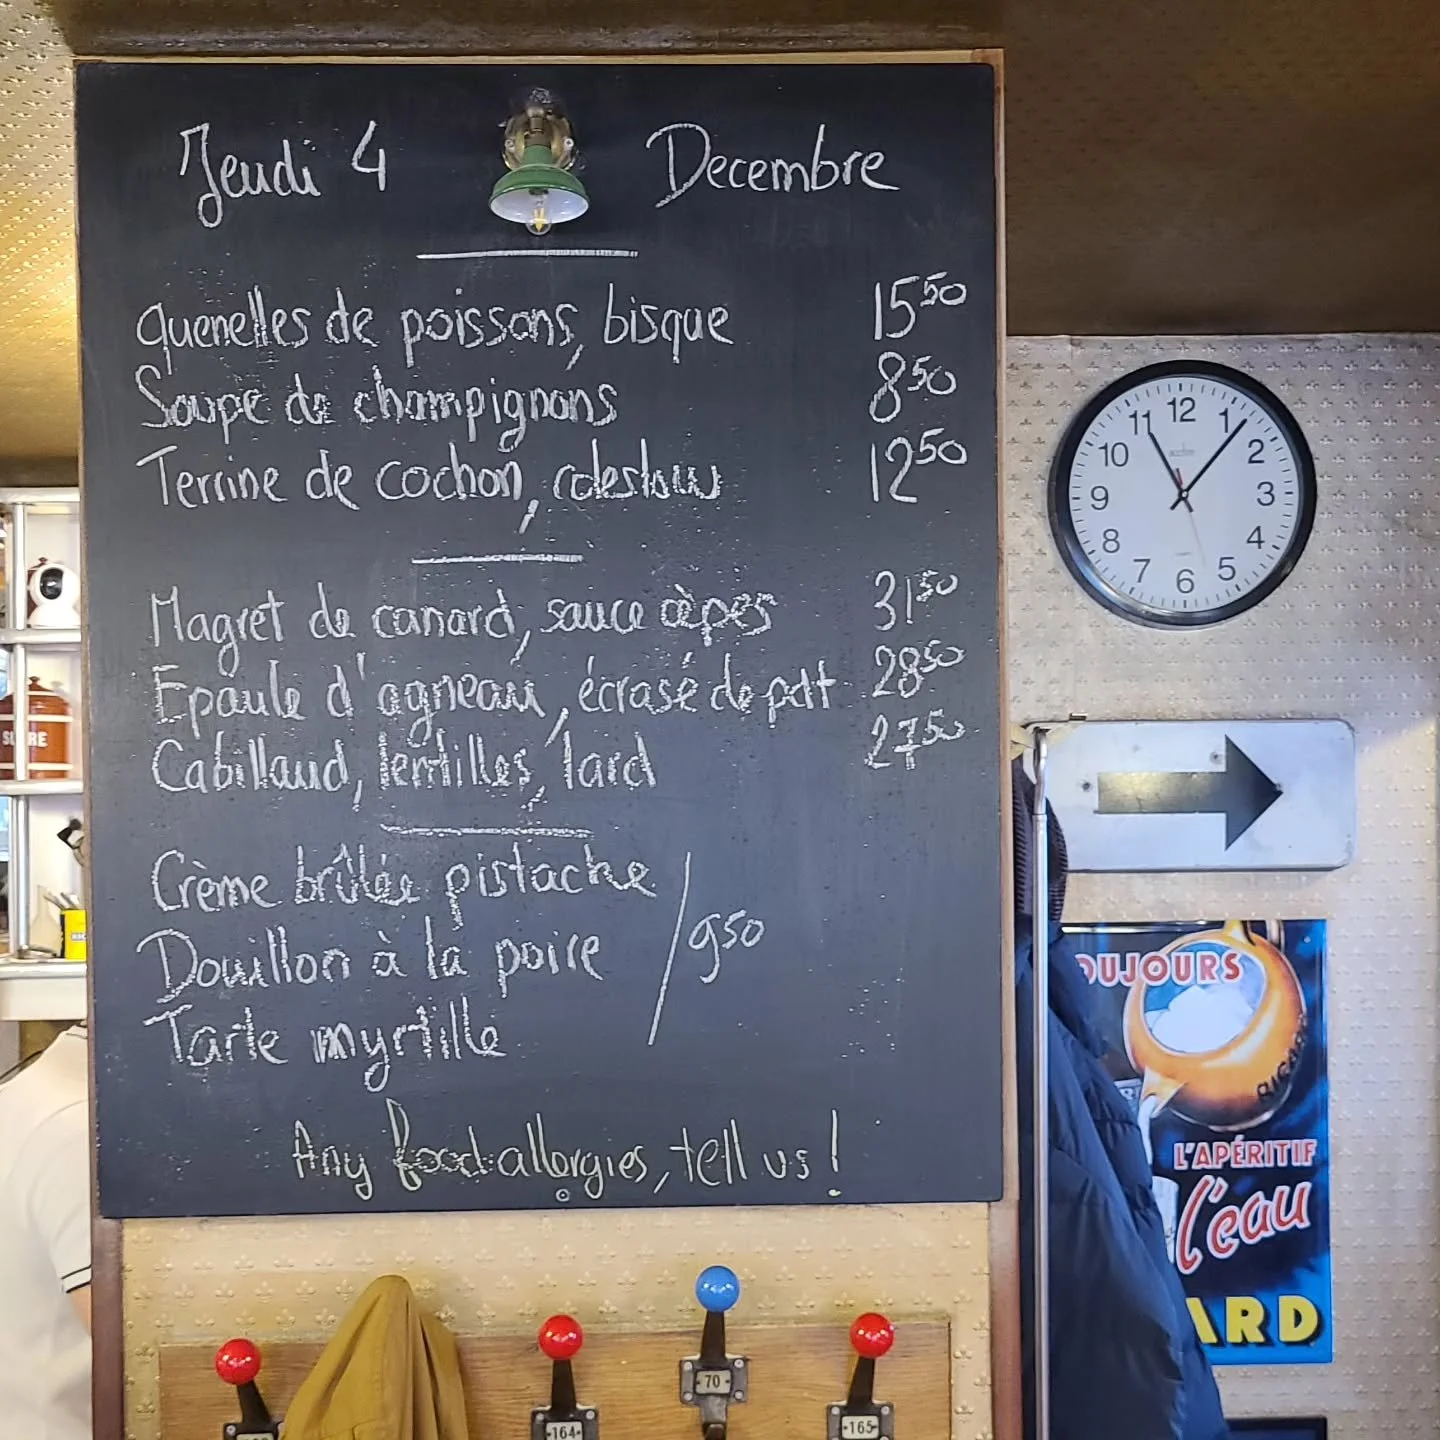 Jeudi 4 Decembre
quenelles de poissons, bisque 15⁵⁰
Soupe de champignons 8⁵⁰
Terrine de cochon, coleslaw 12⁵⁰
Magret de canard, sauce cèpes 31⁵⁰
Epaule d'agneau, écrasé de pdt 28⁵⁰
Cabillaud, lentilles, lard 27⁵⁰
Crème brûlée pistache
Douillon à la poire / 9⁵⁰
Tarte myrtille
Any food allergies, tell us!
12
1
2
3
4
5
6
7
8
9
10
11
OUJOURS
RICARD
L'APÉRITIF
l'eau
ARD
164
70
165